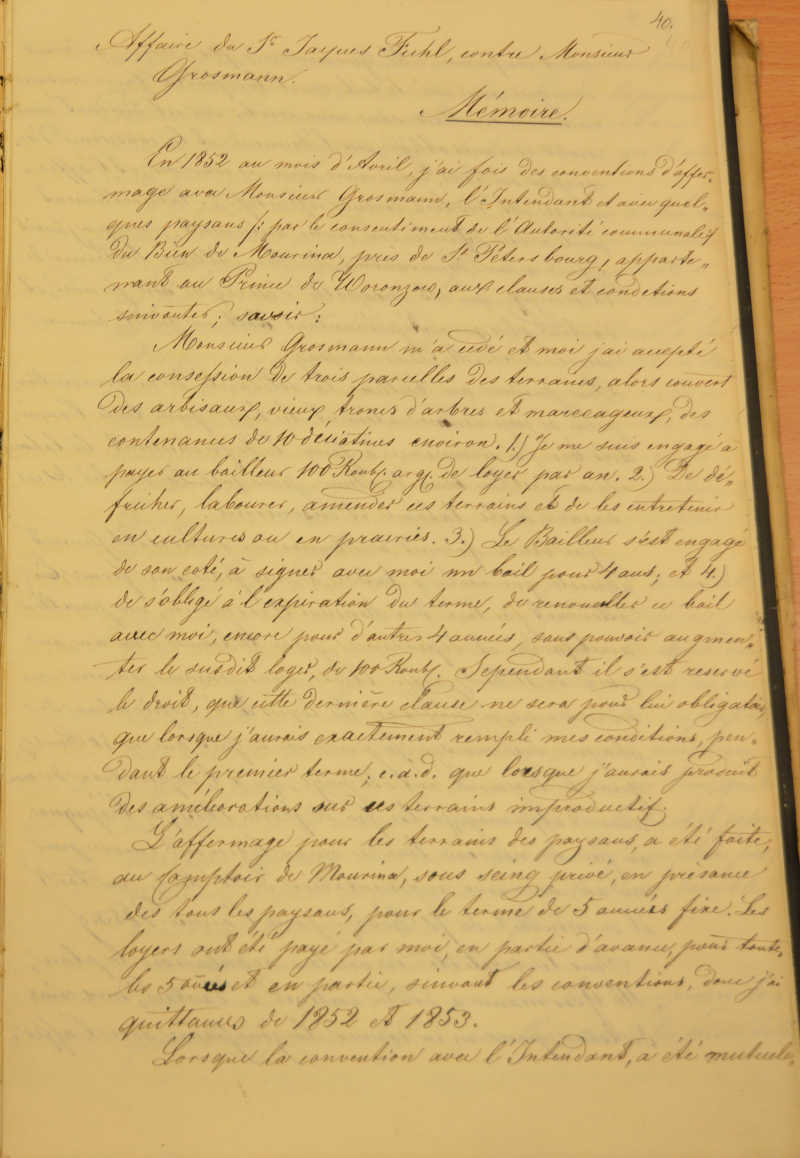 40.
Affaire du Sr Jacques Fehl, contre Monsieur
Grosmann.
Mémoire.
En 1852 au mois d'Avril, j'ai fais des conventions d'affer-
mage avec Monsieur Grosmann, l'Intendant et avec quel-
ques paysans /: par le consentiment de l'Autorité communale :/
du Bien de Mourina, pres de St Pétersbourg, apparte-
nant au Prince de Woronzow, aux clauses et conditions
suivantes; savoir:
Monsieur Grosmann m'a cedé et moi j'ai accepté
la consession de trois parcelles des terrains, alors couvert
des arbisaux, vieux troncs d'arbres et marecageux, des
contenances de 10 déciatines environ. 1.) Je me suis engagé a
payer au bailleur 100 Roub. arg. de loyer par an. 2.) De dé-
fricher, labourer, amender ces terrains et de les entretenir
en cultures ou en prairies. 3.) Le Bailleur s'est engagé
de son coté, à signer avec moi un bail pour 4 ans; et 4.)
de s'obligé à l'expiration du terme, de renouveller ce bail
avec moi, encore pour d'autres 4 années, sans pouvoir augmen-
ter le susdit loyer, de 100 Roub. Sependant il s'est reservé
le droit, que cette dernière clause ne sera pour lui obligatoire
que lorsque j'aurais exactement rempli mes conditions, pen-
dant le premier terme; c.a.d. que lorsque j'aurais produit
des améliorations sur ces terrains improductif.
L'affermage pour les terrains des paysans, a été faite,
au Comptoir de Mourina, sous seing privé, en présance
des tous les paysans, pour le terme de 5 années fixe. Les
loyers ont été payé par moi, en partie d'avance, pour toute
les 5 années et en partie, suivant les conventions, donc j'ai
quittances de 1852 et 1853.
Lorsque la convention avec l'Intendant, a été mutuele-